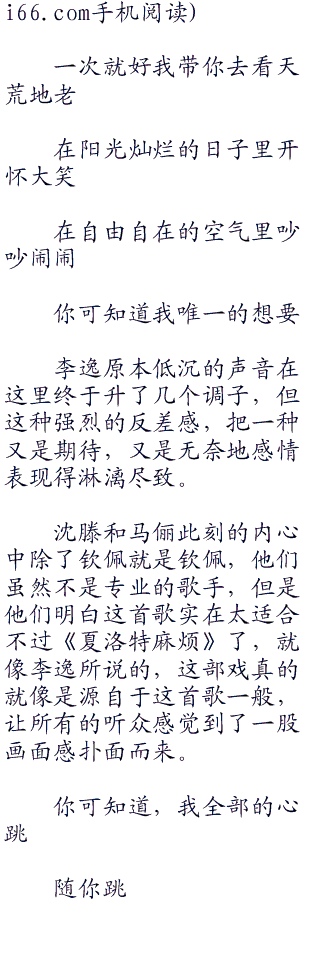 i66.com手机阅读)
一次就好我带你去看天
荒地老
在阳光灿烂的日子里开
怀大笑
在自由自在的空气里吵
吵闹闹
你可知道我唯一的想要
李逸原本低沉的声音在
这里终于升了几个调子，但
这种强烈的反差感，把一种
又是期待，又是无奈地感情
表现得淋漓尽致。
沈滕和马俪此刻的内心
中除了钦佩就是钦佩，他们
虽然不是专业的歌手，但是
他们明白这首歌实在太适合
不过《夏洛特麻烦》了，就
像李逸所说的，这部戏真的
就像是源自于这首歌一般，
让所有的听众感觉到了一股
画面感扑面而来。
你可知道，我全部的心
跳
随你跳